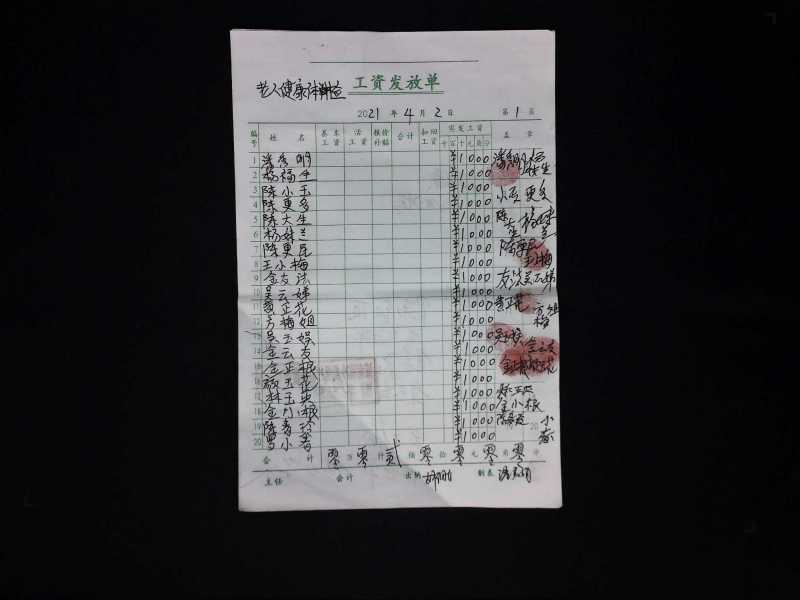 老人健康体检 工资发放单
2021 年 4 月 2 日 第 1 页
编号 姓 名 基本工资 活工资 物价补贴 合计 扣回工资 实发工资 盖 章
十百十元角分
1 潘秀明 ¥1000
2 杨福生 ¥1000
3 陈小玉 ¥1000
4 陈更多 ¥1000 更多
5 陈大生 ¥1000
6 杨妹兰 ¥1000 杨妹兰
7 陈更民 ¥1000
8 王小梅 ¥1000
9 金友法 ¥1000 友法 吴云娣
10 吴云娣 ¥1000
11 黄正花 ¥1000 黄正花
12 方梅姐 ¥1000 方梅姐
13 吴玉娱 ¥1000
14 金云友 ¥1000 金云友
15 金正根 ¥1000
16 玉花 ¥1000
17 林玉英 ¥1000
18 金小根 ¥1000 金小根
19 陈 ¥1000
20 小 ¥1000 20 小
合 计 零 万 零 仟 贰 佰 零 拾 零 元 零 角 零 分
主任 会计 出纳 制表